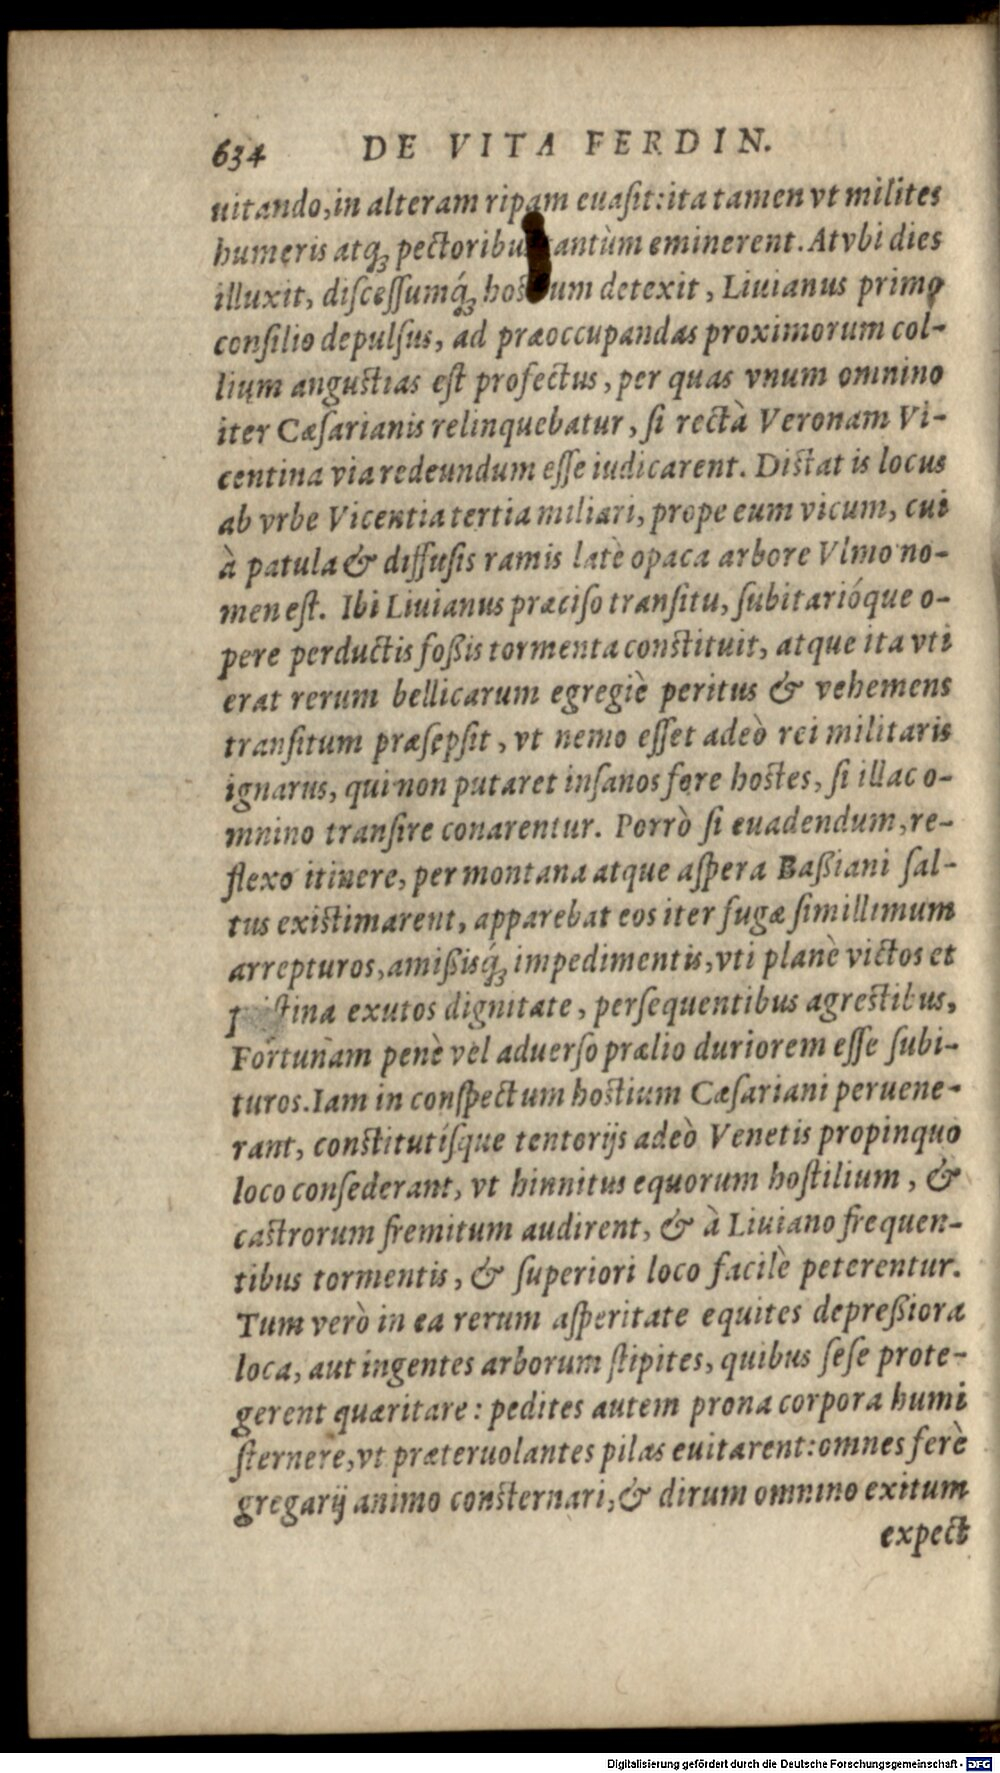 634 DE VITA FERDIN.
uitando, in alteram ripam euaſit: ita tamen vt milites
humeris atq́; pectoribu antùm eminerent. At vbi dies
illuxit, diſceſſumq́; hoſ um detexit, Liuianus primo
conſilio depulſus, ad præoccupandas proximorum col-
lium anguſtias eſt profectus, per quas vnum omnino
iter Cæſarianis relinquebatur, ſi rectà Veronam Vi-
centina via redeundum eſſe iudicarent. Diſtat is locus
ab vrbe Vicentia tertia miliari, prope eum vicum, cui
à patula & diffuſis ramis latè opaca arbore Vlmo no-
men eſt. Ibi Liuianus præciſo tranſitu, ſubitarióque o-
pere perductis foßis tormenta conſtituit, atque ita vti
erat rerum bellicarum egregiè peritus & vehemens
tranſitum præſepſit, vt nemo eſſet adeò rei militaris
ignarus, qui non putaret inſanos fore hoſtes, ſi illac o-
mnino tranſire conarentur. Porrò ſi euadendum, re-
flexo itinere, per montana atque aſpera Baßiani ſal-
tus exiſtimarent, apparebat eos iter fugæ ſimillimum
arrepturos, amißisq́; impedimentis, vti planè victos et
p ſtina exutos dignitate, perſequentibus agreſtibus,
Fortunam penè vel aduerſo prælio duriorem eſſe ſubi-
turos. Iam in conſpectum hoſtium Cæſariani peruene-
rant, conſtitutíſque tentorijs adeò Venetis propinquo
loco conſederant, vt hinnitus equorum hoſtilium, &
caſtrorum fremitum audirent, & à Liuiano frequen-
tibus tormentis, & ſuperiori loco facilè peterentur.
Tum verò in ea rerum aſperitate equites depreßiora
loca, aut ingentes arborum ſtipites, quibus ſeſe prote-
gerent quæritare: pedites autem prona corpora humi
ſternere, vt præteruolantes pilas euitarent: omnes ferè
gregarij animo conſternari, & dirum omnino exitum
expect
Digitalisierung gefördert durch die Deutsche Forschungsgemeinschaft - DFG